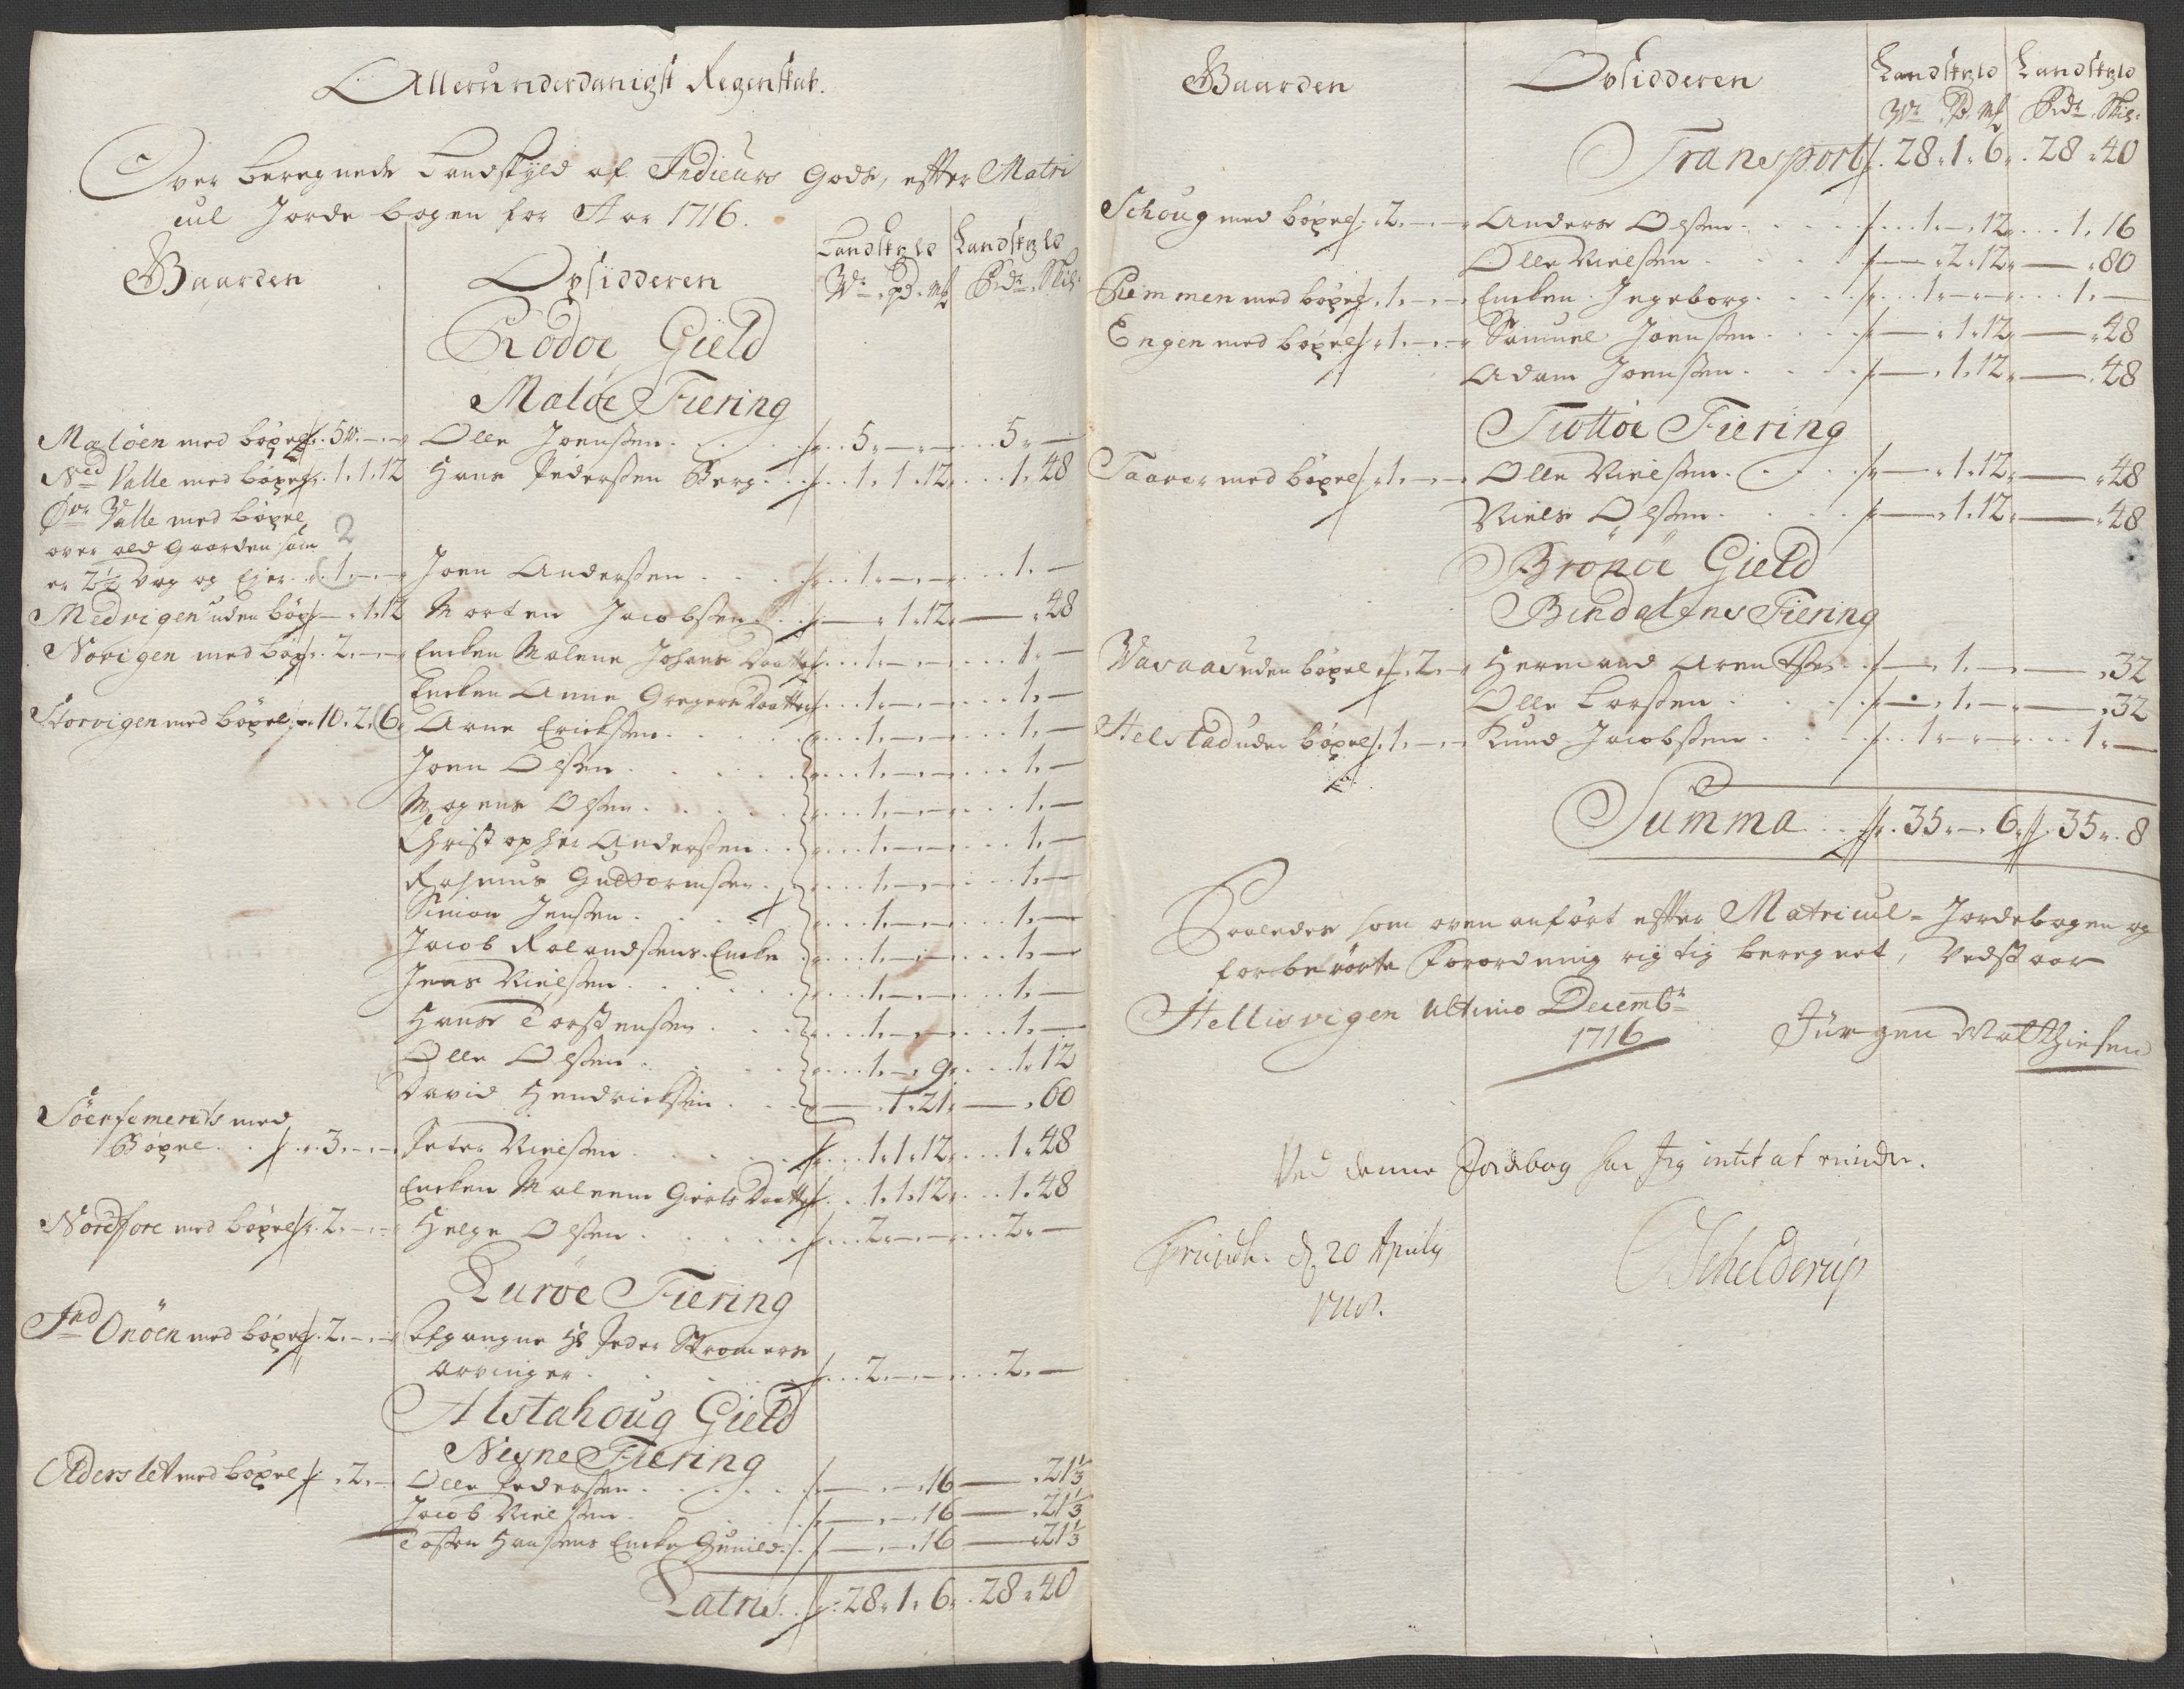 Allerunderdanigst Regenskab.
Over beregnede Landskyld af Indicurs Gods, efter Matri
cul Jorde bogen for Aar 1716.
Gaarden Opsidderen Landskyld Landskyld
W: pd. mk Rdr. Skil:
Rodøe Gield
Maløe Fiering
Mæløen med bøxel 5 W. - - Olle Joenssen 5. - - 5. -
Ned Valle med bøxel 1. 1. 12 Hans Pederssen Berg 1. 1. 12 1. 48
Øvr Valle med bøxel
over ald gaarden som 2
er 2½ Vog og Ejer 1. - - Joen Anderssen 1. - - 1. -
Medvigen uden bøx - 1. 12 Morten Jacobssen - 1. 12 - 48
Novigen med bøx 2. - - Encken Malene Johans Daatter 1. - - 1. -
Encken Anne Gregers Daatter 1. - - 1. -
Storvigen med bøxel 10. 2. 6 Arne Erickssen 1. - - 1. -
Joen Olssen 1. - - 1. -
Mogens Olssen 1. - - 1. -
Christopher Anderssen 1. - - 1. -
Rasmus Guttormssen 1. - - 1. -
Simon Jenssen 1. - - 1. -
Jacob Rolandssens Encke 1. - - 1. -
Jens Nielssen 1. - - 1. -
Hans Torstenssen 1. - - 1. -
Olle Olssen 1. - 9 1. 12
David Hendrickssen - 1. 21 - 60
Söerfemerits med
Bøxel 3. - - Peter Nielssen 1. 1. 12 1. 48
Encken Maleene Gierts Daatter 1. 1. 12 1. 48
Nordfore med bøxel 2. - - Helge Olssen 2. - - 2. -
Lurøe Fiering
Ind Onöen med bøxel 2. - - Afgangne Hr Peder Strømers
arvinger 2. - - 2. -
Alstahoug Gield
Neyne Fiering
Alderslet med bøxel 2. - Olle Pederssen - - 16 - 21⅓
Jacob Nielssen - - 16 - 21⅓
Tosten Hanssens Encke Gunild - - 16 - 21⅓
Latris 28. 1. 6. 28. 40
Gaarden Opsidderen Landskyld Landskyld
W: P. mk Rdr. Skil:
Transport 28. 1. 6. 28. 40
Schoug med bøxel 2. - - Anders Olssen 1. - 12 1. 16
Olle Nielssen - 2. 12 - 80
Remmen med bøxel 1. - - Encken Ingeborg 1. - - 1. -
Engen med bøxel 1. - - Samuel Joenssen - 1. 12 - 48
Adam Joenssen - 1. 12 - 48
Tiottøe Fiering
Taaver med bøxel 1. - - Olle Nielssen - 1. 12 - 48
Niels Olssen - 1. 12 - 48
Brønöe Gield
Bindalens Fiering
Vasaas uden bøxel 2. - Hermand Arentsen - 1. - - 32
Olle Larssen - 1. - - 32
Helstad uden bøxel 1. - - Knud Jacobssen 1. - - 1. -
Summa 35. - 6. 35. 8
Saaledes som oven anført efter Matricul-Jordebogen og
forberörte Forordning rigtig beregnet, Vedstaar
Hellisvigen ultimo Decembr
1716 Jürgen Matthiesen
Ved denne Jordebog har Jeg intet at erindre.
d 20 Aprilij
Schelderup